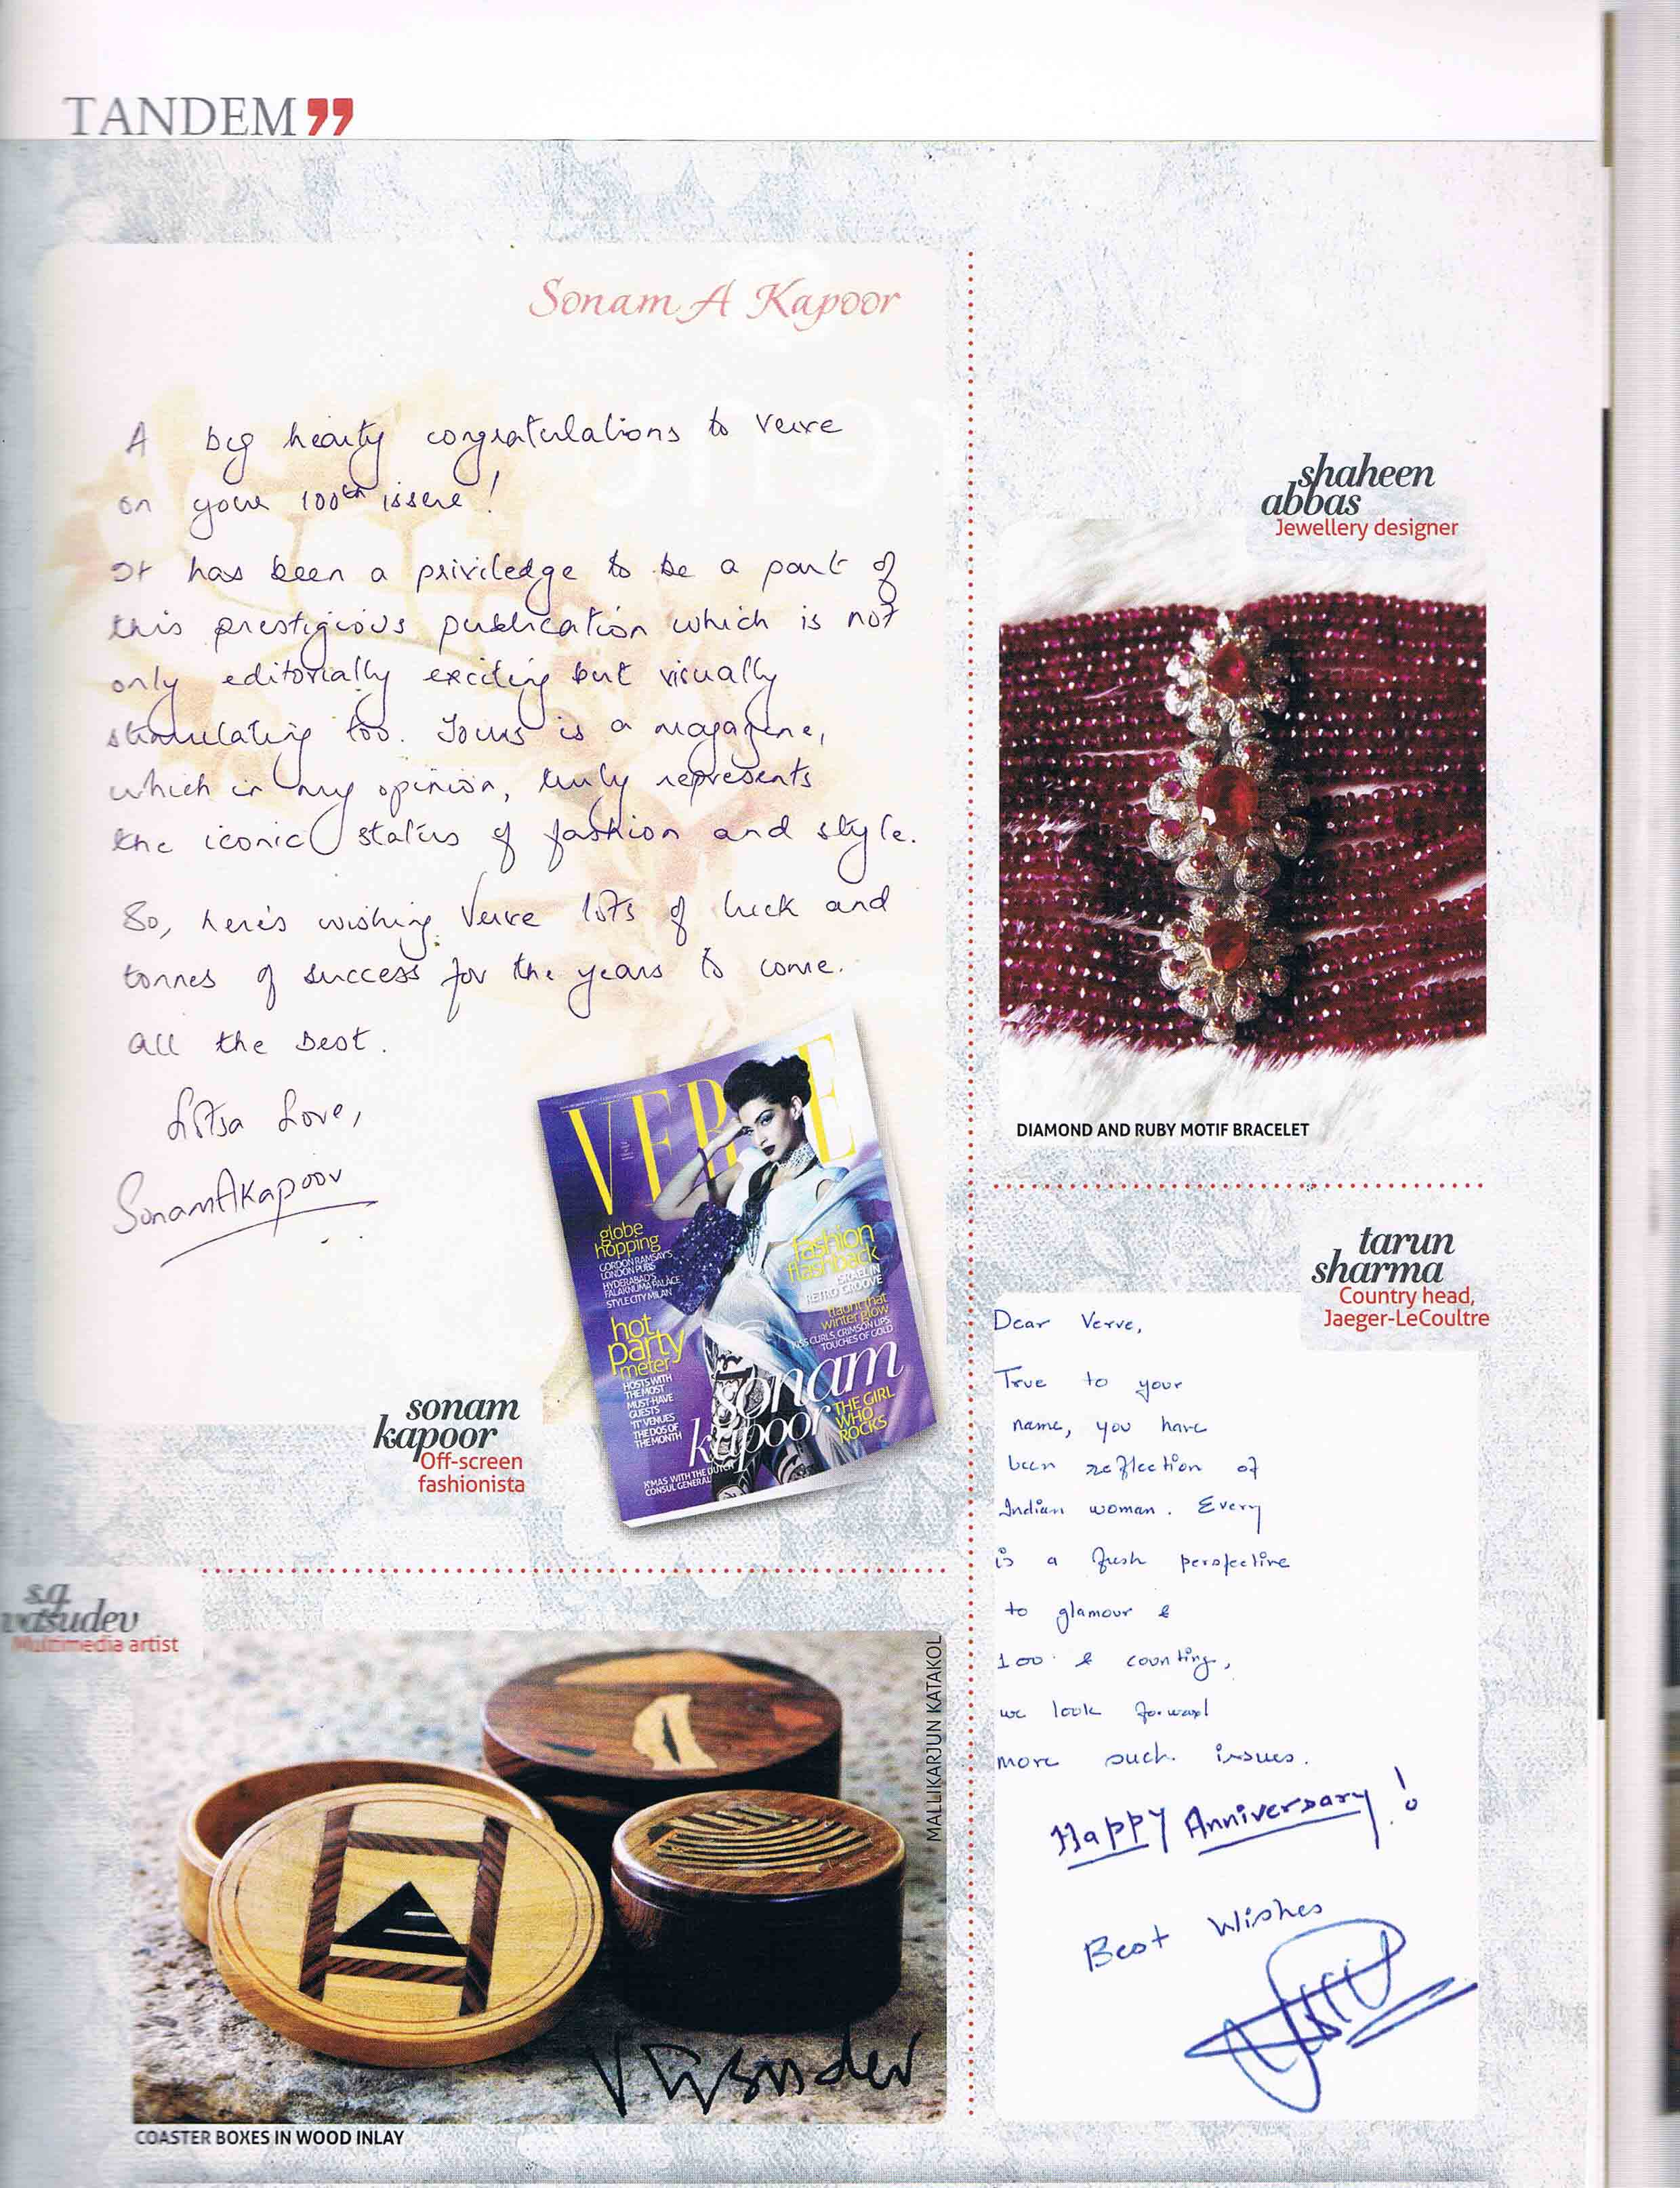 TANDEM”
Sonam A Kapoor
A big hearty congratulations to Verve
on your 100th issue!
It has been a priviledge to be a part of
this prestigious publication which is not
only editorially exciting but visually
stimulating too. Yours is a magazine,
which in my opinion, truly represents
the iconic status of fashion and style.
So, here's wishing Verve lots of luck and
tonnes of success for the years to come.
All the best.
Lotsa Love,
SonamAKapoor
VERVE
globe
hopping
GORDON RAMSAY'S
LONDON PUBS
HYDERABAD'S
FALAKNUMA PALACE
STYLE CITY MILAN
hot
party
meter
HOSTS WITH
THE MOST
MUST-HAVE
GUESTS
'IT' VENUES
THE DOS OF
THE MONTH
X'MAS WITH THE DUTCH
CONSUL GENERAL
fashion
flashback
ISRAEL IN
RETRO GROOVE
flaunt that
winter glow
KISS CURLS, CRIMSON LIPS,
TOUCHES OF GOLD
sonam
kapoor
THE GIRL
WHO
ROCKS
sonam
kapoor
Off-screen
fashionista
s.g.
vasudev
Multimedia artist
MALLIKARJUN KATAKOL
Vasudev
COASTER BOXES IN WOOD INLAY
shaheen
abbas
Jewellery designer
DIAMOND AND RUBY MOTIF BRACELET
tarun
sharma
Country head,
Jaeger-LeCoultre
Dear Verve,
True to your
name, you have
been reflection of
Indian woman. Every
is a fresh perspective
to glamour &
100 & counting,
we look forward
more such issues.
Happy Anniversary!
Best Wishes